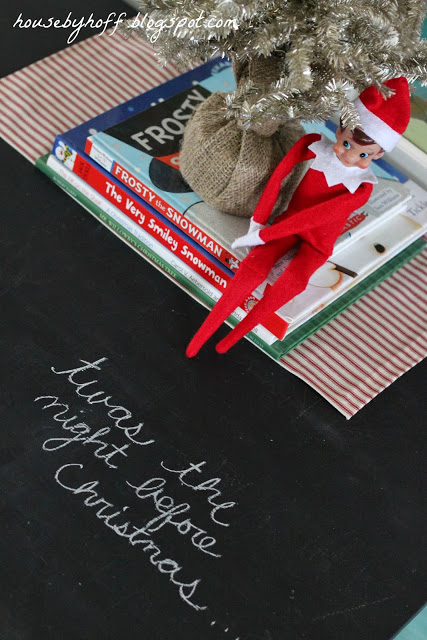 housebyhoff.blogspot.com
FROSTY
FROSTY THE SNOWMAN
The Very Smiley Snowman
twas the
night before
Christmas...